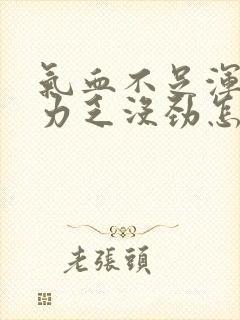 氣血不足渾
力乏沒勁怎
老張頭